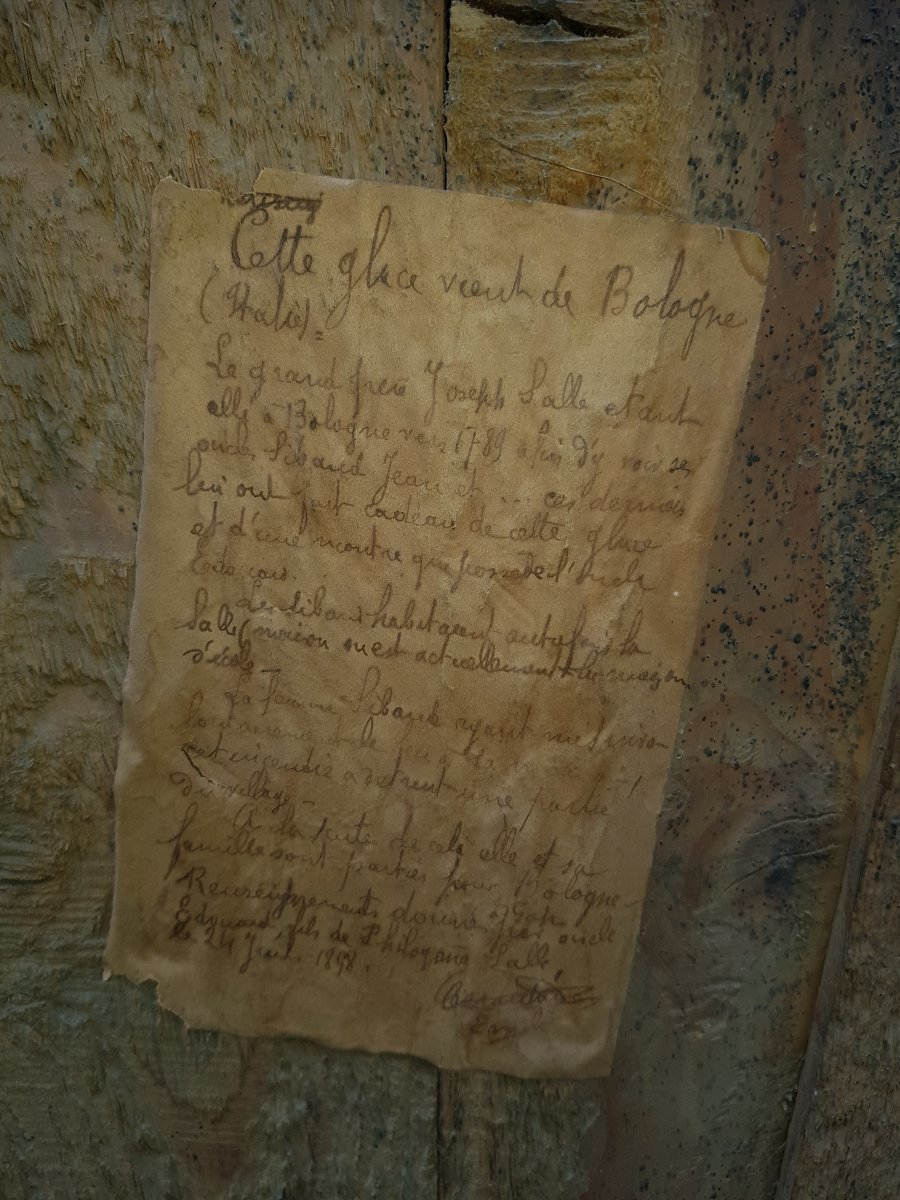 Cette glace vient de Bologne
(Italie) =
Le grand père Joseph Salle étant
allé à Bologne vers 1789 afin d'y voir ses
oncles Siband Jean et ... ces derniers
lui ont fait cadeau de cette glace
et d'une montre que possède l'oncle
Edouard.
Les Siband habitaient autrefois la
Salle (maison où est actuellement la maison
d'école -
La femme Siband ayant mis invo-
lontairement le feu à sa
cet incendie a détruit une partie
du village -
A la suite de cela elle et sa
famille sont parties pour Bologne -
Renseignements donnés à Gap par oncle
Edouard, fils de Philogène Salle
le 24 1898.